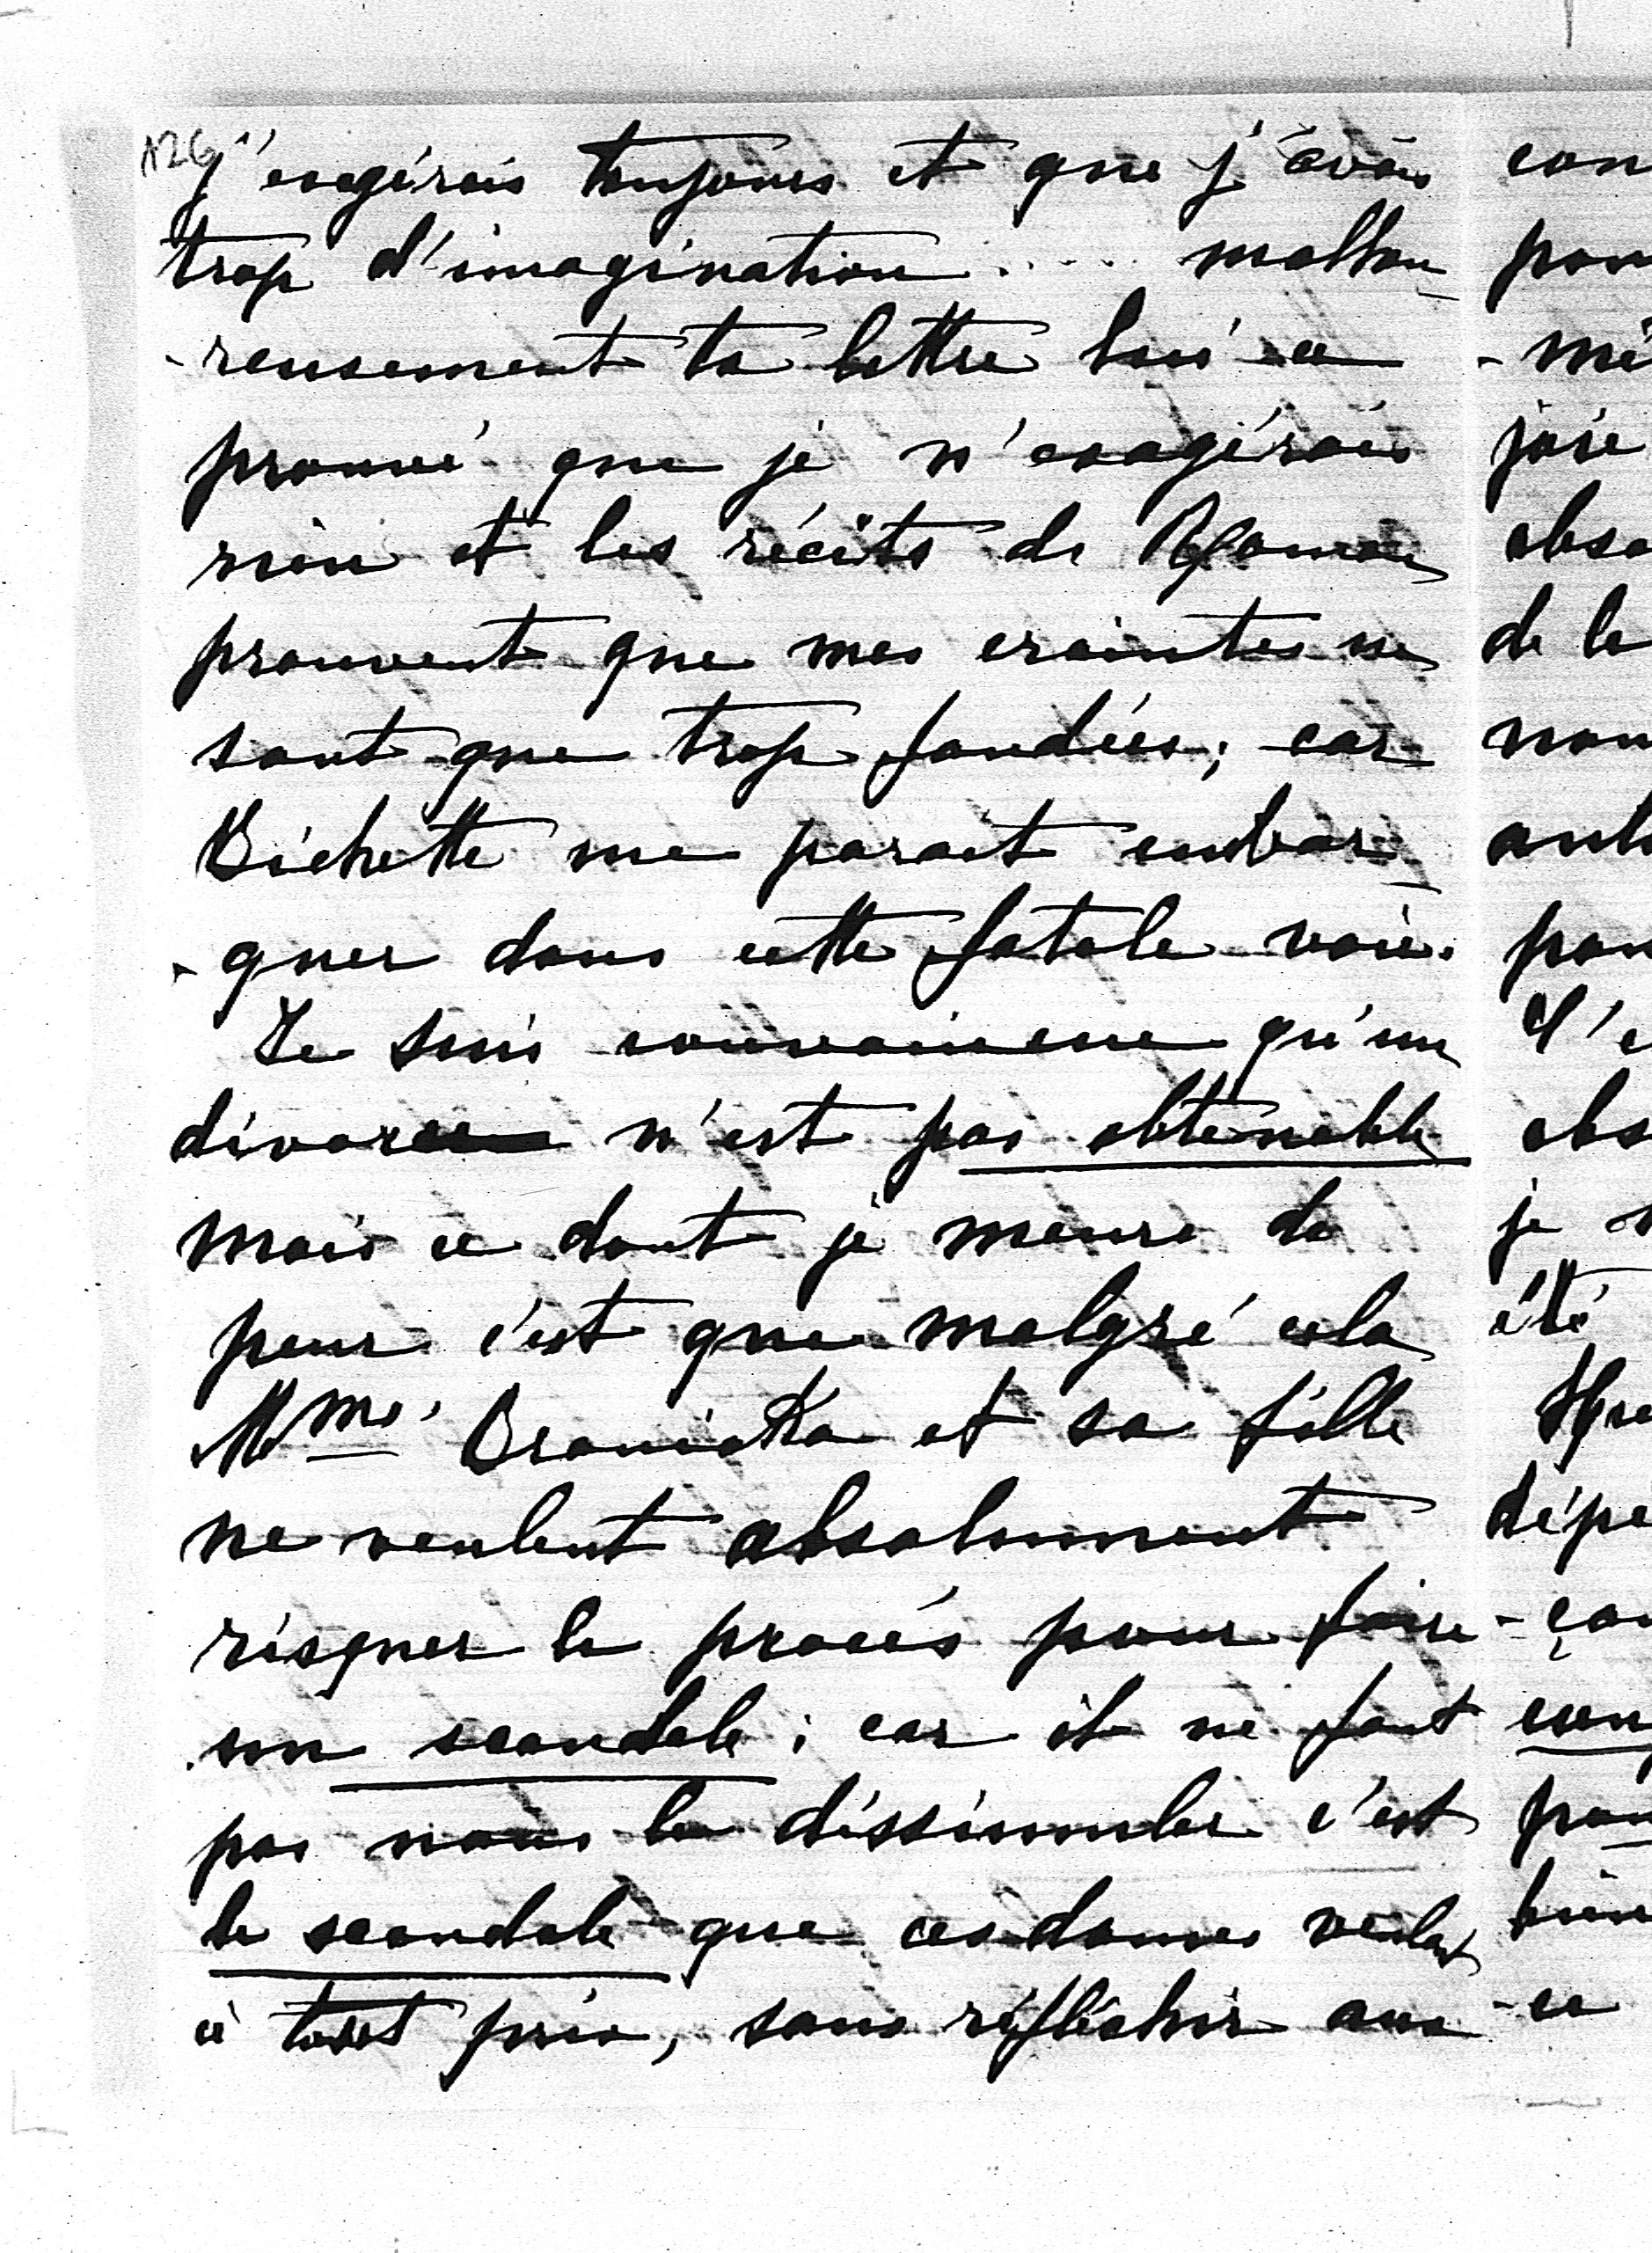 126
j'exagérais toujours et que j'avais
trop d'imagination ..... malheu-
-reusement ta lettre lui a
prouvé que je n'exagérais
rien et les récits de Roman
prouvent que mes craintes ne
sont que trop fondées; car
Bichette me parait embar-
-quer dans cette fatale voie.
Je suis convaincue qu'un
divorce n'est pas obtenable
mais ce dont je meure de
peur c'est que malgré cela
Mme. et sa fille
ne veulent absolument
risquer le procés pour faire
son scandale; car il ne faut
pas nous le dissimuler c'est
le scandale que ces dames veulent
à tout prix, sans réfléchir aux
con
pou
-mi
joie
abso
de le
nou
pou
L'e
abs
je
été
dépe
-çou
con
pou
bien
-ce